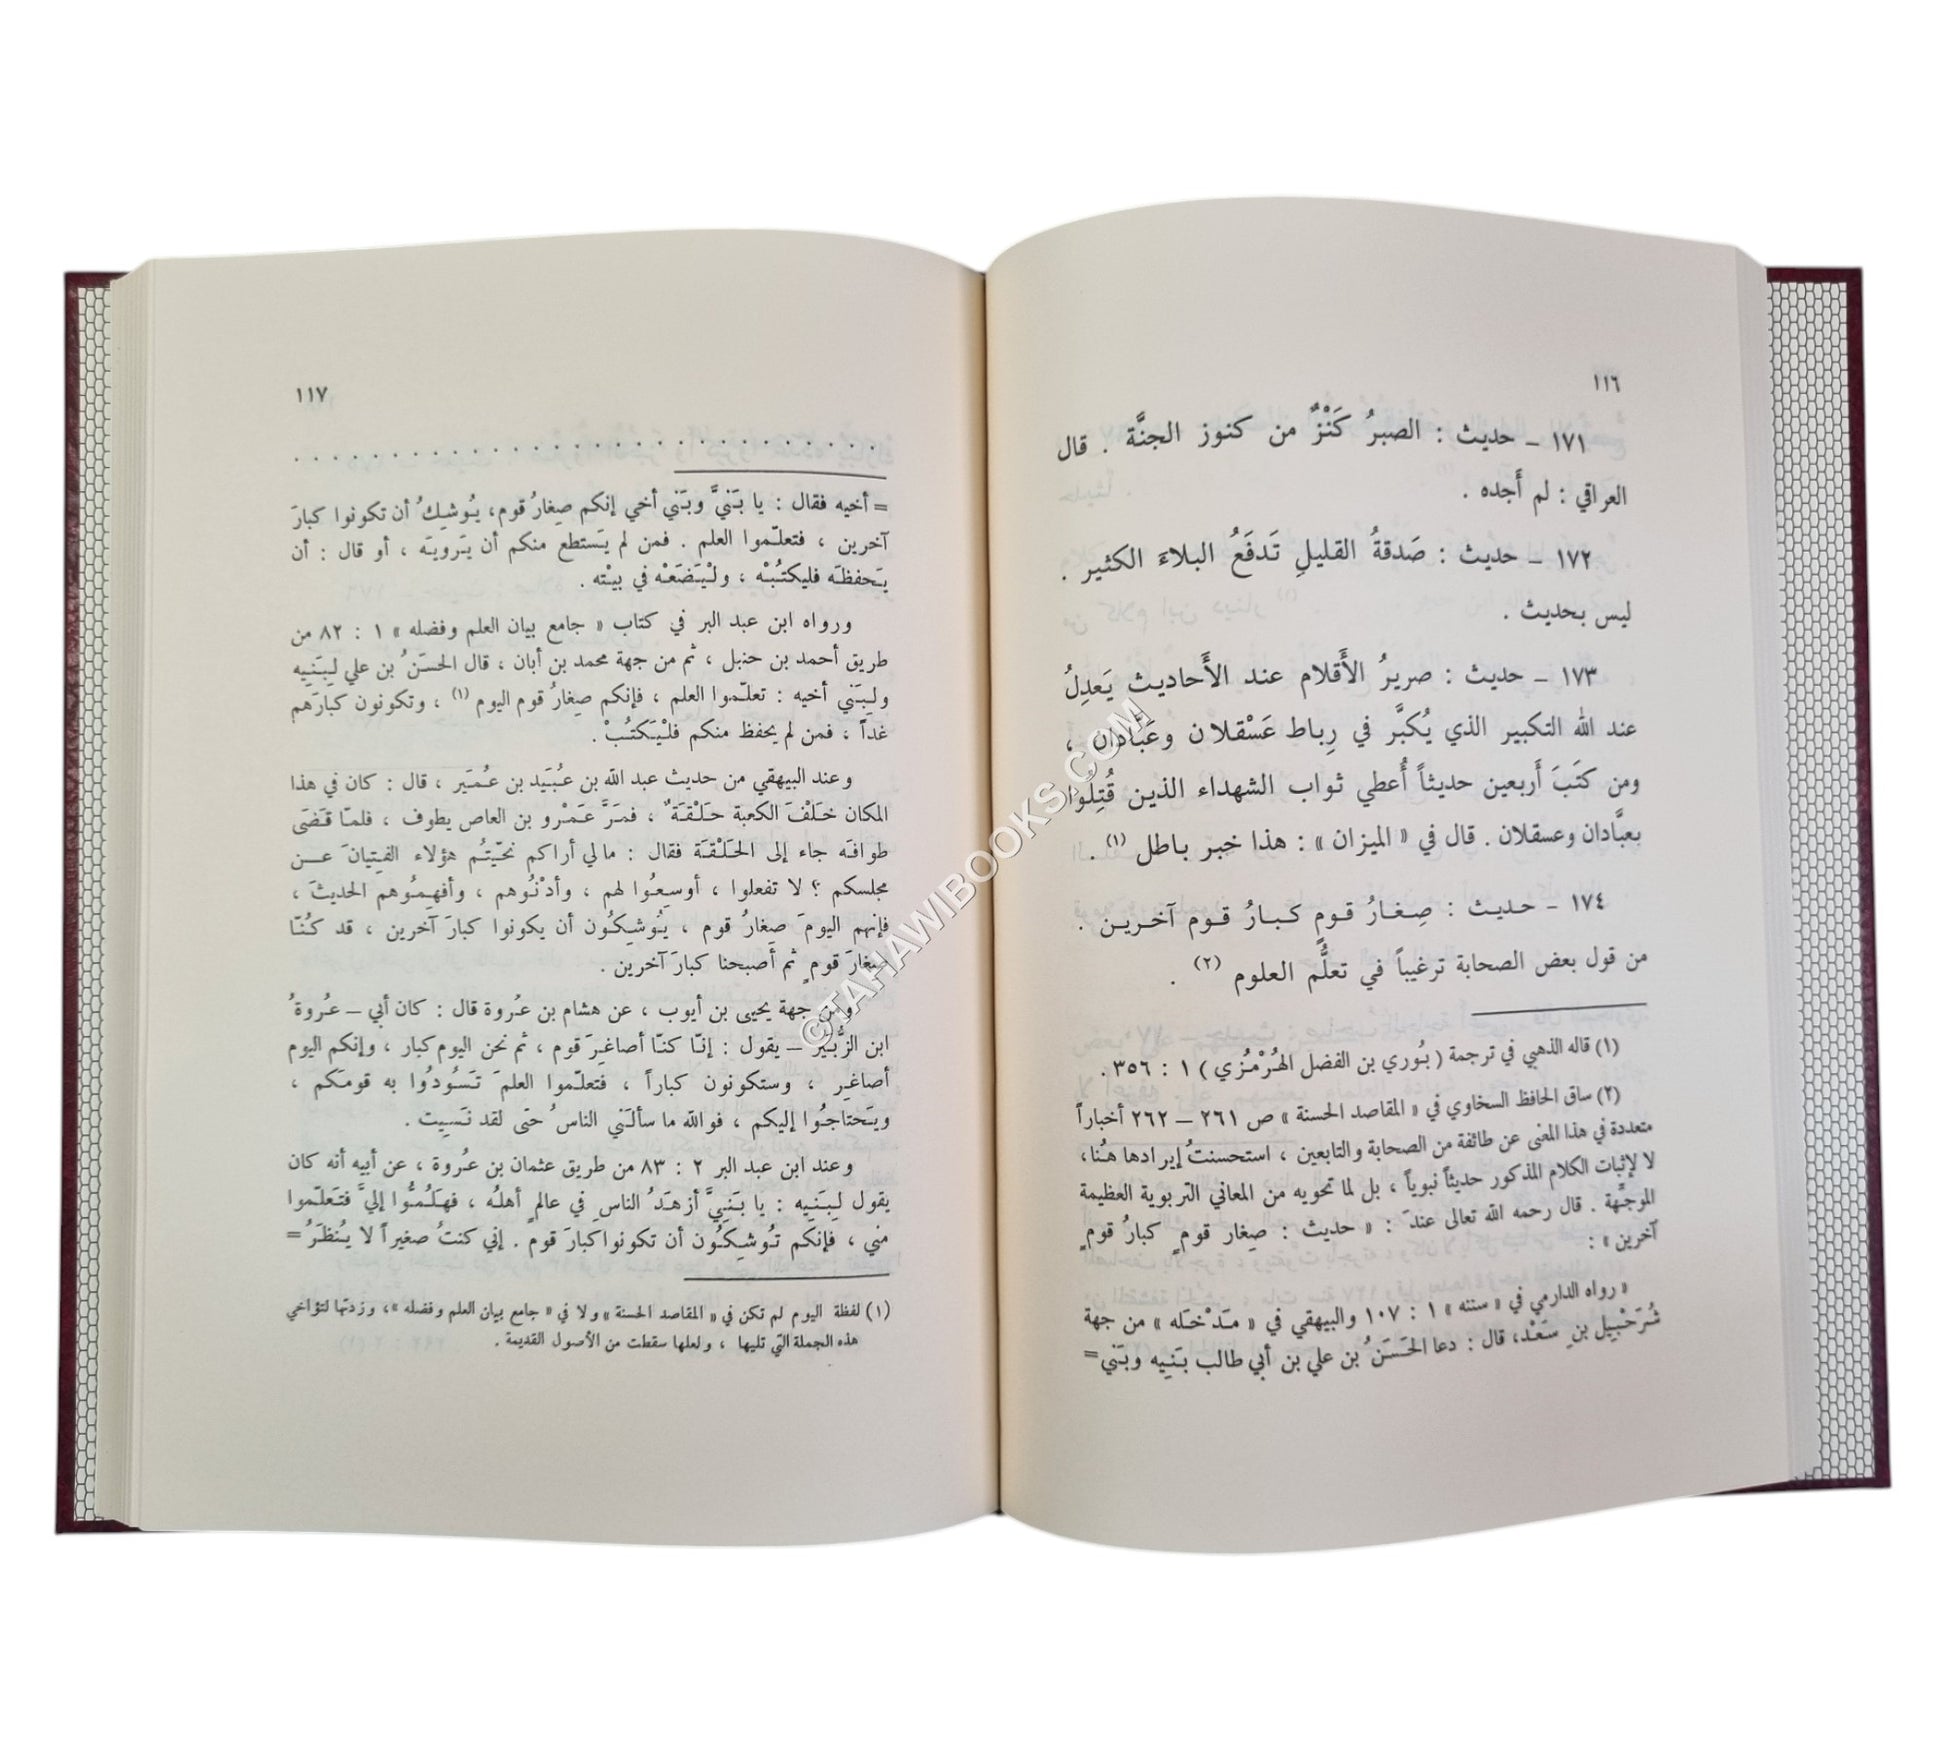 ١١٦
١٧١ – حديث : الصبرُ كَنْزٌ من كنوز الجنَّة . قال
العراقي : لم أَجده .
١٧٢ – حديث : صَدقةُ القليلِ تَدفَعُ البلاءَ الكثير .
ليس بحديث .
١٧٣ – حديث : صريرُ الأَقلام عند الأَحاديث يَعدِلُ
عند الله التكبير الذي يُكبَّر في رِباط عَسْقلان وعَبَّادان ،
ومن كتَبَ أَربعين حديثاً أُعطي ثواب الشهداء الذين قُتِلُوا
بعبَّادان وعسقلان . قال في « الميزان » : هذا خبر باطل (١) .
١٧٤ – حديث : صِغارُ قومٍ كبارُ قوم آخرين .
من قول بعض الصحابة ترغيباً في تعلُّم العلوم (٢) .
(١) قاله الذهبي في ترجمة ( بُوري بن الفضل الهُرْمُزي ) ١ : ٣٥٦ .
(٢) ساق الحافظ السخاوي في « المقاصد الحسنة » ص ٢٦١ – ٢٦٢ أخباراً
متعددة في هذا المعنى عن طائفة من الصحابة والتابعين ، استحسنتُ إيرادها هُنا،
لا لإثبات الكلام المذكور حديثاً نبوياً ، بل لما تحويه من المعاني التربوية العظيمة
الموجهة . قال رحمه الله تعالى عندَ : « حديث : صِغار قومٍ كبارُ قومٍ
آخرين » :
« رواه الدارمي في « سننه » ١ : ١٠٧ والبيهقي في « مَدْخَله » من جهة
شُرَحْبِيل بنِ سَعْد، قال : دعا الحَسَنُ بن علي بن أبي طالب بَنِيه وبَني=
١١٧
= أخيه فقال : يا بَنيَّ وبَني أخي إنكم صِغارُ قوم، يُوشِكُ أن تكونوا كبارَ
آخرين ، فتعلّموا العلم . فمن لم يَستطع منكم أن يَرويَه ، أو قال : أن
يَحفظَه فليكتُبْه ، ولْيَضَعْه في بيْته .
ورواه ابن عبد البر في كتاب « جامع بيان العلم وفضله » ١ : ٨٢ من
طريق أحمد بن حنبل ، ثم من جهة محمد بن أبان ، قال الحسَنُ بن علي لِبَنِيه
ولِبَني أخيه : تعلّموا العلم ، فإنكم صِغارُ قوم اليوم (١) ، وتكونون كبارَهم
غداً ، فمن لم يحفظ منكم فلْيَكتُبْ .
وعند البيهقي من حديث عبد الله بن عُبَيد بن عُمَير ، قال : كان في هذا
المكان خَلْفَ الكعبة حَلْقَةٌ ، فمَرَّ عَمْرو بن العاص يطوف ، فلمّا قَضَى
طوافَه جاء إلى الحَلْقَة فقال : مالي أراكم نحّيتُم هؤلاء الفتيانَ عن
مجلسكم ؟ لا تفعلوا ، أوسِعُوا لهم ، وأدْنُوهم ، وأفهِمُوهم الحديثَ ،
فإنهم اليومَ صِغارُ قوم ، يُوشِكُون أن يكونوا كبارَ آخرين ، قد كُنّا
صِغارَ قومٍ ثم أصبحنا كبارَ آخرين .
ومن جهة يحيى بن أيوب ، عن هشام بن عُروة قال : كان أبي – عُروةُ
ابن الزُّبَير – يقول : إنّا كنّا أصاغِرَ قوم ، ثم نحن اليوم كبار ، وإنكم اليوم
أصاغِر ، وستكونون كباراً ، فتعلّموا العلمَ تَسُودُوا به قومَكم ،
ويَحتاجُوا إليكم ، فوالله ما سألَني الناسُ حتى لقد نَسِيت .
وعند ابن عبد البر ٢ : ٨٣ من طريق عثمان بن عُروة ، عن أبيه أنه كان
يقول لِبَنِيه : يا بَنِيَّ أزهَدُ الناسِ في عالمٍ أهلُه ، فهَلُمُّوا إليَّ فتَعلّموا
مني ، فإنكم تُوشِكُون أن تكونوا كبارَ قوم . إني كنتُ صغيراً لا يُنظَرُ=
(١) لفظة اليوم لم تكن في « المقاصد الحسنة » ولا في « جامع بيان العلم وفضله »، وزدتها لتؤاخي
هذه الجملة التي تليها ، ولعلها سقطت من الأصول القديمة .
©TAHAWIBOOKS.COM